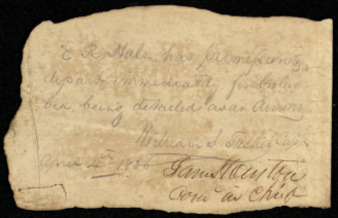 E R Hale has permission to
depart immediately for Colum
bia being detailed as an Armorer
William S Fisher Cap
April 2nd 1836
Sam Houston
Com in Chief